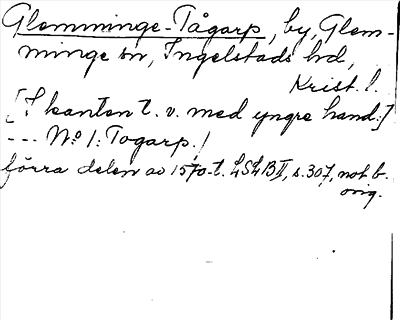 Glemminge-Tågarp, by, Glem-
minge sn, Ingelstads hd,
Krist. l.
[I kanten t. v. med yngre hand:]
--- No 1: Togarp. /
förra delen av 1570-t. LSLBII, s. 307, not b.
orig.